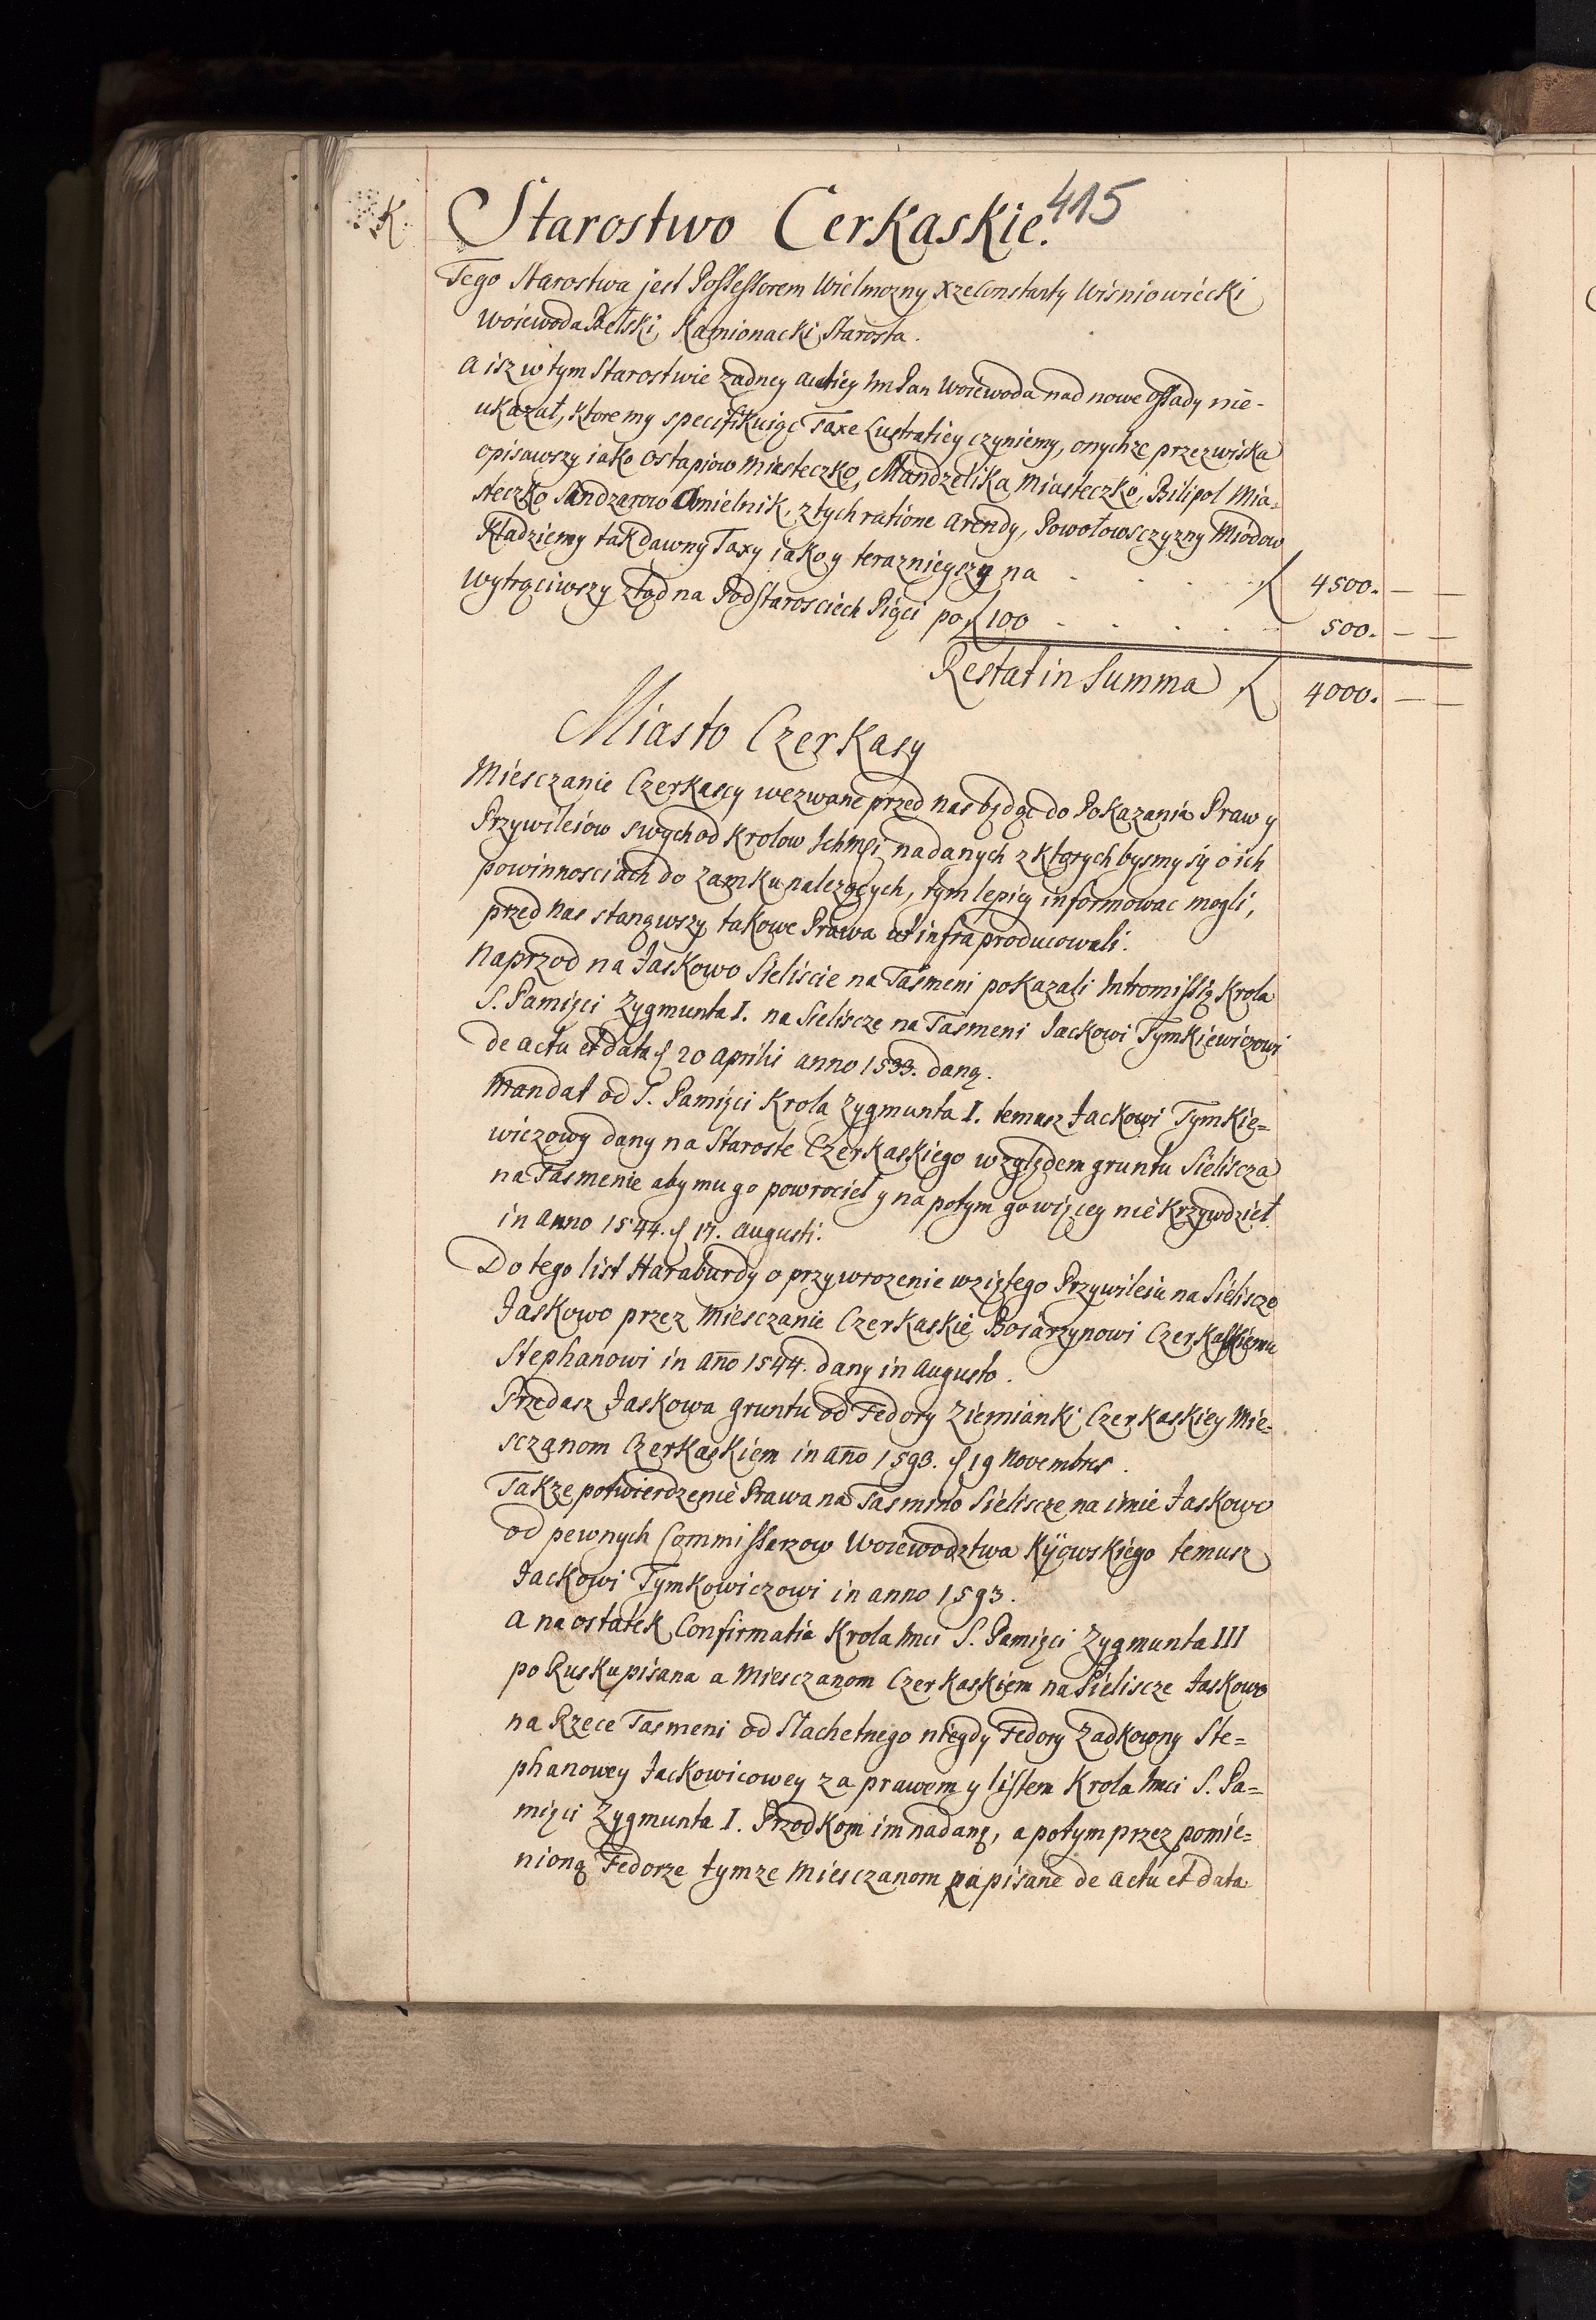 K.
415
Starostwo Cerkaskie.
Tego Starostwa jest Possessorem Wielmozny Xze Constanty Wisniowiecki
Woiewoda Bełski, Kamionacki Starosta.
A isz w tym Starostwie zadney autiey Im Pan Woiewoda nad nowe Ossady nie-
ukazał, ktore my specifikuiąc Taxe Lustratiey czyniemy, onychze przezwiska
opisawszy iako Ostapiow Miasteczko, Mandzelika Miasteczko, Bilipol Mia-
steczko Sandzarow Chmielnik, z tych ratione Arendy, Powołowsczyzny Miodow
Kładziemy tak dawny Taxy iako y terazniejszy na . . . . 4500. — —
Wytrąciwszy ztąd na Podstarosciech Pięci po 100 . . . . . 500. — —
Restat in Summa 4000. — —
Miasto Czerkasy
Miesczanie Czerkascy wezwane przed nas będąc do Pokazania Praw y
Przywileiow swych od Krolow Ichmci nadanych z ktorych bysmy się o ich
powinnosciach do Zamku nalezących, tym lepiey informowac mogli,
przed nas stanąwszy takowe Prawa ut infra producowali.
Naprzod na Jaskowo Sieliscie na Tasmeni pokazali Intromissią Krola
S. Pamięci Zygmunta I. na Sieliscze na Tasmeni Jackowi Tymkiewiczowi
de actu et data 20 Aprilis anno 1533. daną.
Mandat od S. Pamięci Krola Zygmunta I. temusz Jackowi Tymkie=
wiczowy dany na Staroste Czerkaskiego względem gruntu Sieliscza
na Tasmenie aby mu go powrocieł y na potym go więcey nie krzywdzieł
in Anno 1544. 17. Augusti.
Do tego list Haraburdy o przywrozenie wziętego Przywileiu na Sielisczo
Jaskowo przez Miesczanie Czerkaskie Boiarzynowi Czerkaskiemu
Stephanowi in Año 1544. dany in Augusto.
Przedasz Jaskowa gruntu od Fedory Ziemianki Czerkaskiey Mie=
sczanom Czerkaskiem in Año 1593. 19 Novembris.
Takze potwierdzenie Prawa na Tasmino Sieliscze na imie Jaskowo
od pewnych Commissarzow Woiewodztwa Kijowskiego temusz
Jackowi Tymkowiczowi in anno 1593.
A na ostatek Confirmatia Krola Imci S. Pamięci Zygmunta III
po Rusku pisana a Miesczanom Czerkaskiem na Sieliscze Jaskowo
na Rzece Tasmeni od Slachetnego niegdy Fedory Zadkowny Ste=
phanowey Jackowicowey za prawem y listem Krola Imci S. Pa=
mięci Zygmunta I. Przodkom im nadanę, a potym przez pomie=
nioną Fedorze tymze Miesczanom zapisane de actu et data